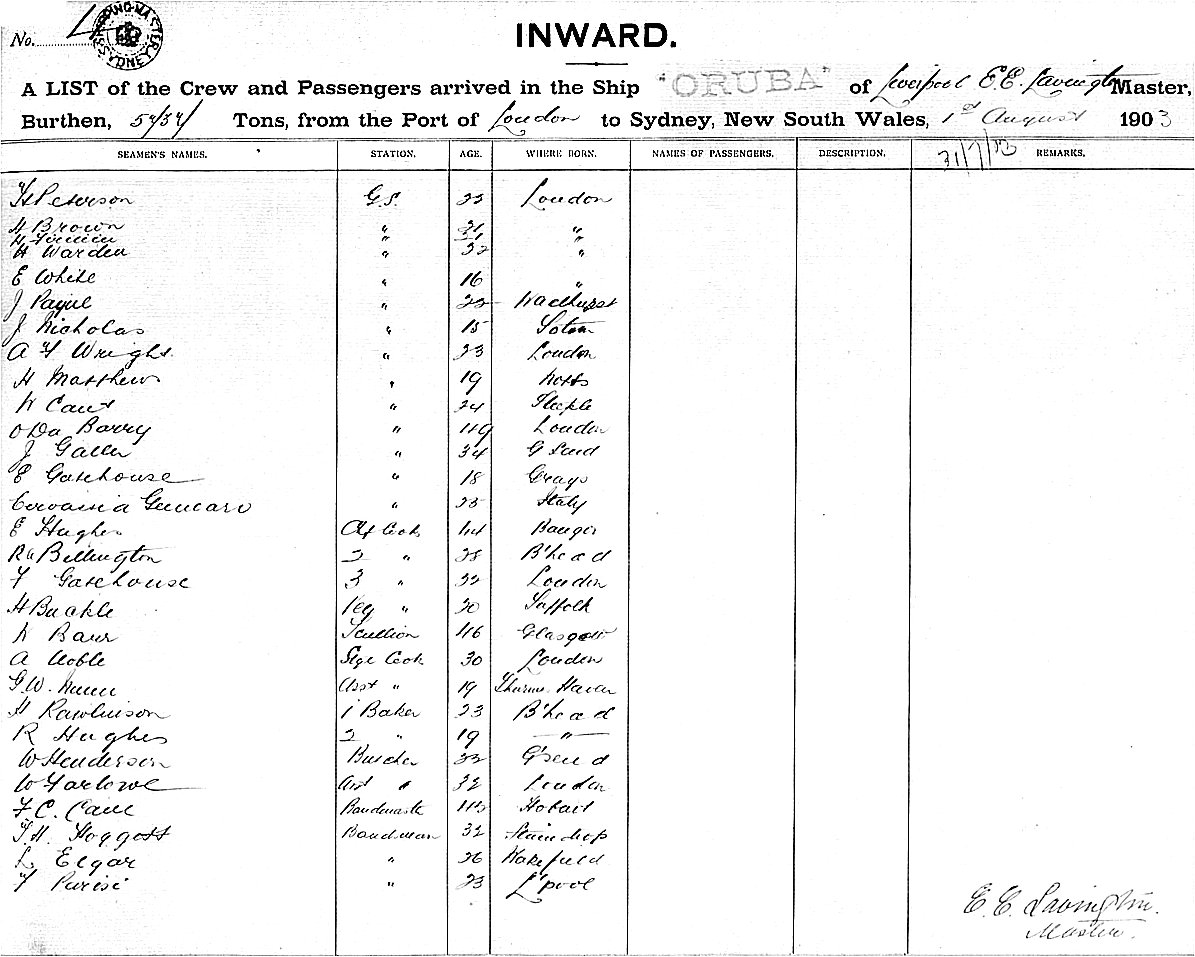 No. L
SHIPPING MASTER SYDNEY
INWARD.
A LIST of the Crew and Passengers arrived in the Ship "ORUBA" of Liverpool E.E. Lavington Master,
Burthen, 5434 Tons, from the Port of London to Sydney, New South Wales, 1st August 1903
SEAMEN'S NAMES. STATION. AGE. WHERE BORN. NAMES OF PASSENGERS. DESCRIPTION. 31/7/03 REMARKS.
Peterson G.S. 22 London
H Brown " 21 "
H " "
H Warden " 32 "
E White " 16 "
J Payne " 22 Wadhurst
J Nicholas " 15 Soton
A F Wright " 23 London
H Matthews " 19 Notts
W Cant " 24 Steeple
O Da Barry " 49 London
J " 34 G Send
E Gatehouse " 18 Grays
" 25 Italy
E Hughes Cook 44 Bangor
Billington 2 " 28 B'head
F Gatehouse 3 " 22 London
H Buckle Veg " 20 Suffolk
W Scullion 46 Glasgow
A Noble Stge Cook 30 London
G.W. Nunn Asst " 19 Thames Haven
H Rawlinson 1 Baker 23 B'head
R Hughes 2 " 19 "
W Henderson Butcher 33 G'send
W Farlowe Asst " 32 London
F.C. Bandmaster Hobart
F.H. Hoggett Bandsman 32 Staindrop
L Elgar " 26 Wakefield
F Purisi " 23 L'pool
E.E. Lavington.
Master.